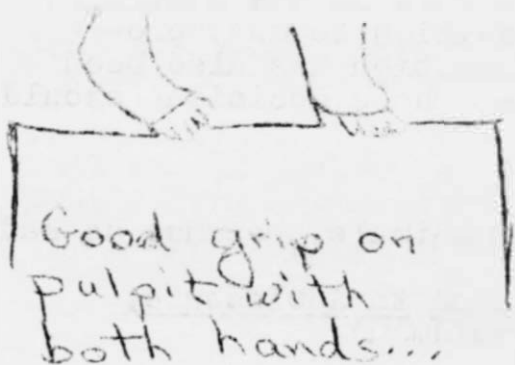 Good grip on
pulpit with
both hands...